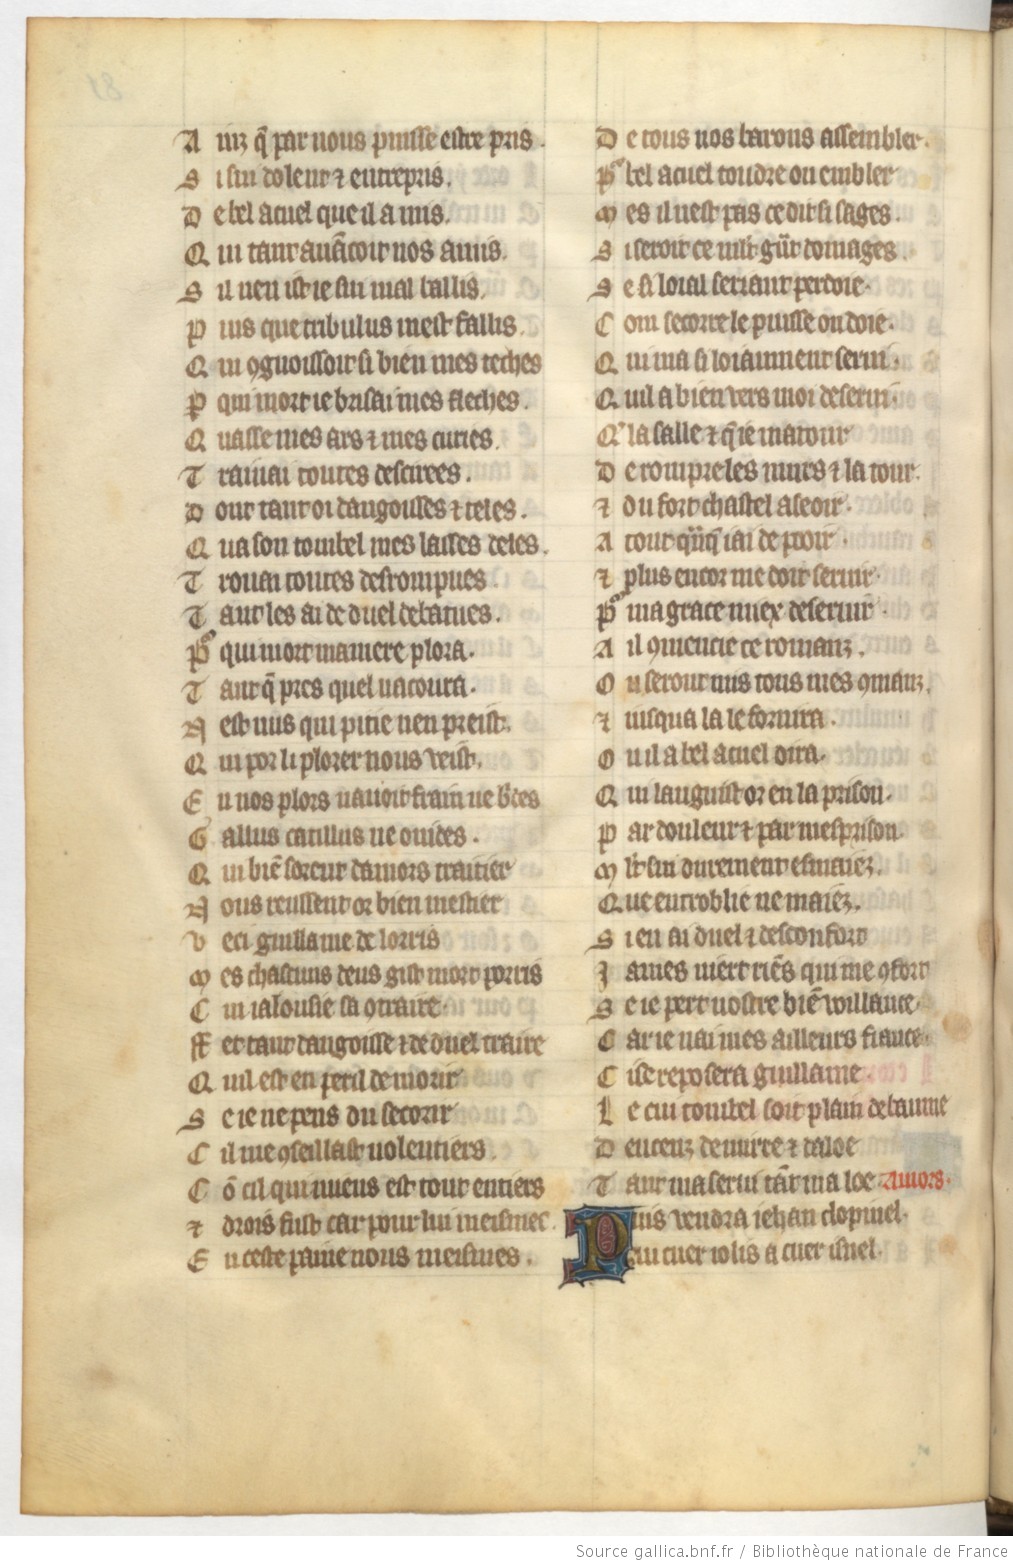 A niz q̄ par nous puisse estre pris.
S i sui dolenz ⁊ entrepris.
D e bel acuel que il a mis.
Q ui tant auācoit nos amis.
S il nen ist ie sui mal ballis.
P uis que tribulus mest fallis.
Q ui ꝯgnoissoit si bien mes teches
P̱ qui mort ie brisai mes fleches.
Q uasse mes ars ⁊ mes cuiries.
T rainai toutes descirees.
D ont tant oi dangousses ⁊ teles.
Q ua son tombel mes lasses deles.
T rouai toutes desrompues.
T ant les ai de duel debatues.
P͛ qui mort ma mere plora.
T ant q̄ pres quel nacoura.
N est nus qui pitie nen preist.
Q ui por li plorer nous veist.
E n nos plors nauoit frain ne b͛des
G allus catillus ne ouides.
Q ui biē sorent damors traitier
N ous reussent or bien mestier
V eci guillame de lorris
M es chascuns deus gist mort porris
C ui ialousie sa ꝯtraire.
ff et tant dangoisse ⁊ de duel traire
Q uil est en peril de morir
S e ie ne pens du secorir
C il me ꝯseillast uolentiers.
C ō cil qui miens est tout entiers
⁊ drois fust car pour lui meismes.
E n ceste paine nous meismes.
D e tous nos barons assembler.
P͛ bel acuel toudre ou embler
M es il nest pas ce dit si sages.
S i seroit ce mlt g̃nt domages.
S e si loial seriant perdoie.
C om secorre le puisse ou doie.
Q ui ma si loiaument serui.
Q uil a bien vers moi deserui.
Q͛ la salle ⁊ q̄ ie matour
D e rompre les murs ⁊ la tour.
⁊ du fort chastel aseoir.
A tout q̃nq̃ iai de pooir.
⁊ plus encor me doit seruir.
P͛ ma grace miex deseruir.
A il ꝯmencie ce romanz.
O u seront mis tous mes ꝯmanz.
⁊ iusqua la le fornira.
O u il a bel acuel dira.
Q ui languist or en la prison.
P ar douleur ⁊ par mesprison.
M lt sui durement esmaiez.
Q ue entroblie ne maiez.
S i en ai duel ⁊ desconfort
J ames niert riēs qui me ꝯfort
S e ie pert uostre biē voillance.
C ar ie nai mes ailleurs fiance.
C i se reposera guillame
L e cui tombel soit plain de baume
D encenz de mirre ⁊ daloe
T ant ma serui tāt ma loe amors.
Puis vendra iehan clopinel.
Au cuer iolis a cuer isnel.
Source gallica.bnf.fr / Bibliothèque nationale de France